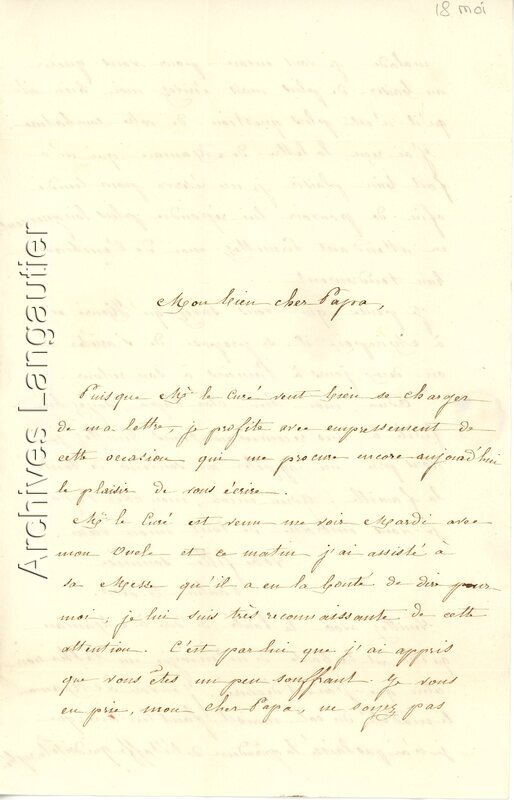 18 moi
Mon bien cher Papa,
Puisque Mr le Curé veut bien se charger
de ma lettre, je profite avec empressement de
cette occasion qui me procure encore aujourd'hui
le plaisir de vous écrire.
Mr le Curé est venu me voir Mardi avec
mon Oncle et ce matin j'ai assisté à
sa Messe qu'il a eu la bonté de dire pour
moi, je lui suis très reconnaissante de cette
attention. C'est par lui que j'ai appris
que vous êtes un peu souffrant. Je vous
en prie, mon cher Papa, ne soyez pas
Archives Langautier